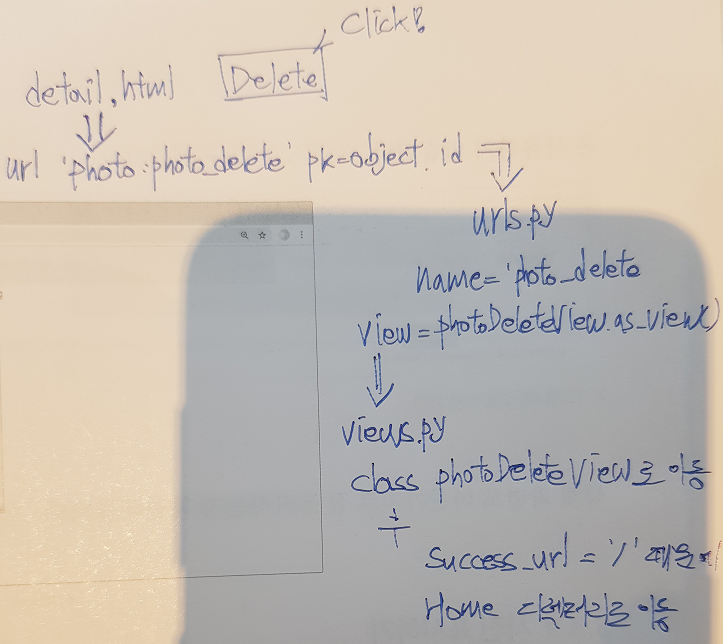 Click!
detail.html Delete
url 'photo:photo_delete' pk=object.id
urls.py
name='photo_delete
view=photoDeleteView.as_view()
views.py
class photoDeleteView로 이동
+
success_url = '/' 때문에
Home 디렉터리로 이동